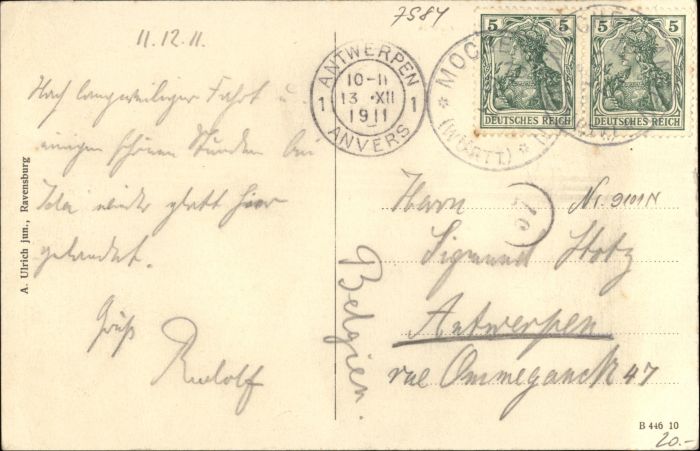 7584
11.12.11.
Nach langweiliger Fahrt u.
einigen schönen Stunden bei
Ida wieder glatt hier
gelandet.
Gruß
Rudolf
A. Ulrich jun., Ravensburg
ANTWERPEN
1 10-11 1
13 XII
1911
ANVERS
MOCHE
(WÜRTT.)
5 5
DEUTSCHES REICH
5 5
DEUTSCHES REICH
Herrn
Nr. 9101 N
Sigmund Stotz
Antwerpen
rue Ommeganck 47
Belgien.
B 446 10
20.-